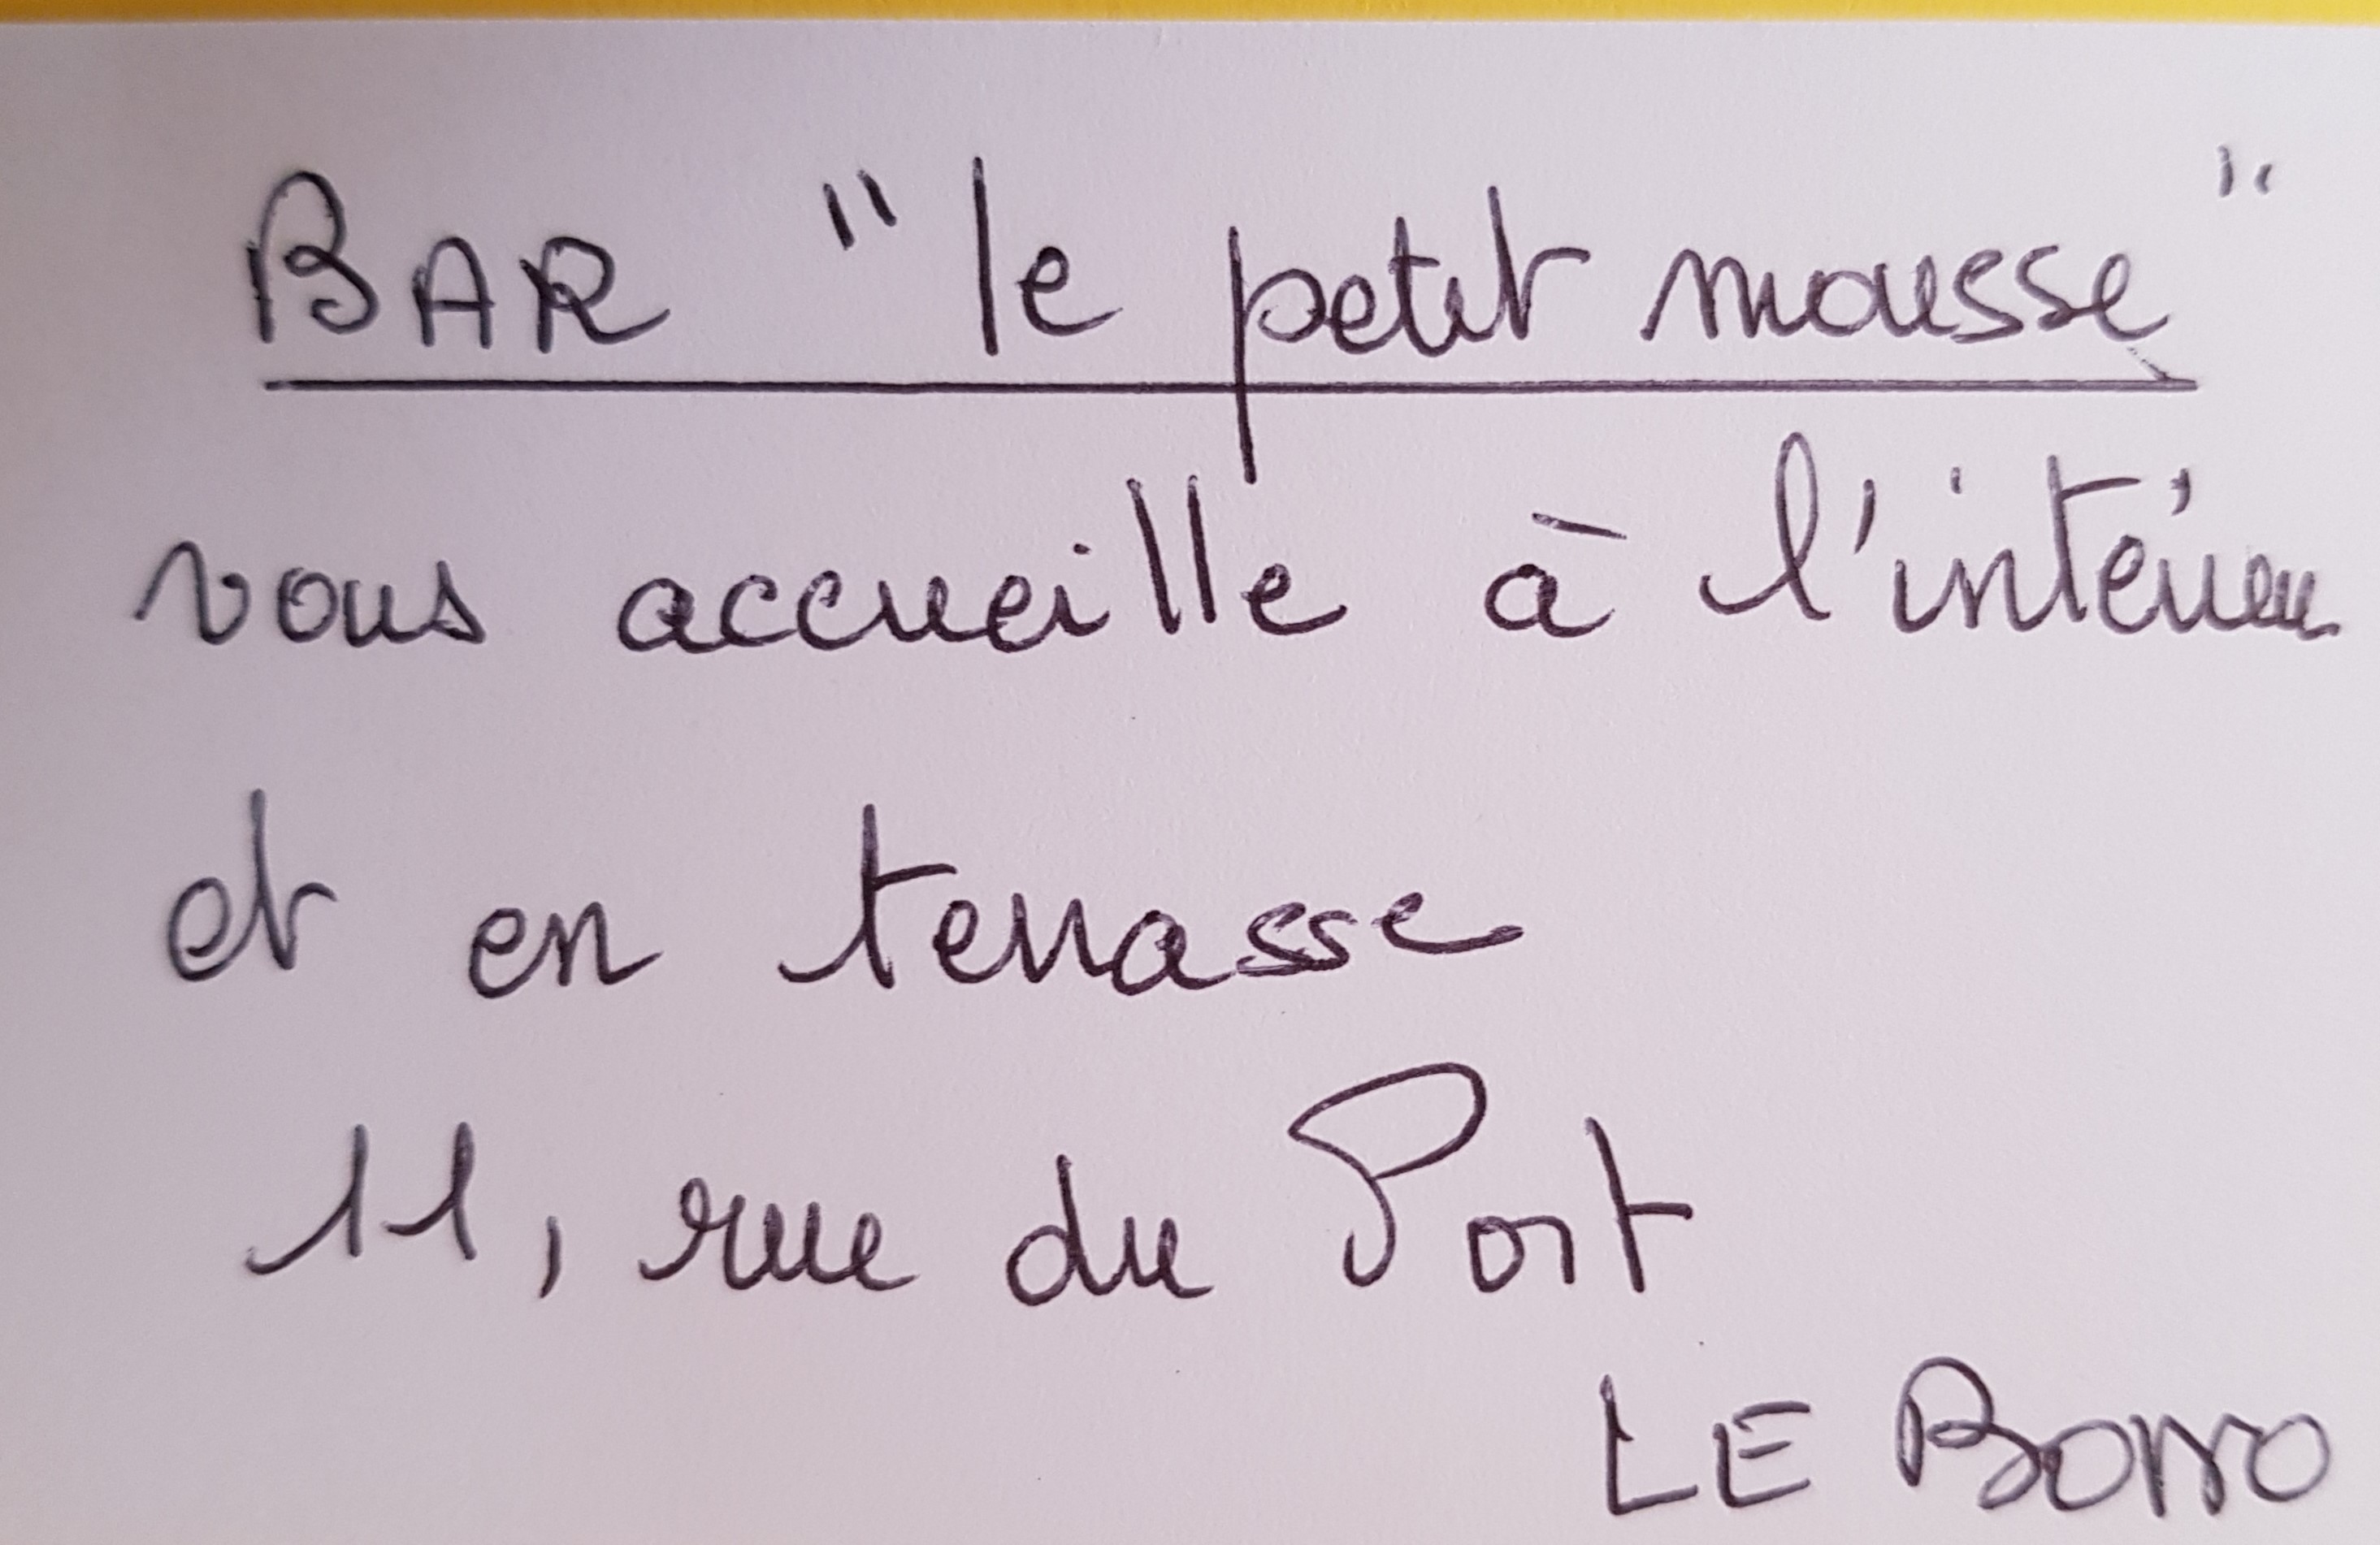 BAR "le petit mousse"
vous accueille à l'intérieur
et en terrasse
11, rue du Port
LE BONO